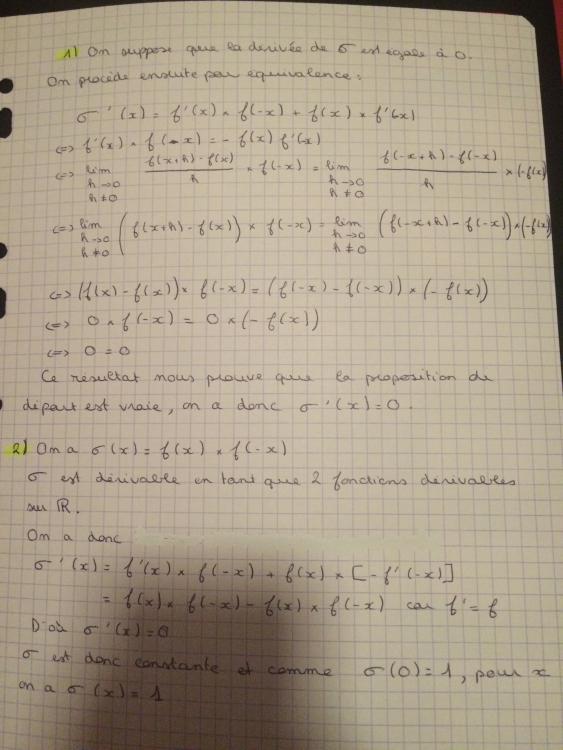 1) On suppose que la dérivée de σ est égale à 0.
On procède ensuite par équivalence :
σ'(x) = f'(x) × f(-x) + f(x) × f'(x)
<=> f'(x) × f(-x) = - f(x) f'(x)
<=> lim h→0 h≠0 (f(x+h) - f(x))/h × f(-x) = lim h→0 h≠0 (f(-x+h) - f(-x))/h × (-f(x))
<=> lim h→0 h≠0 (f(x+h) - f(x)) × f(-x) = lim h→0 h≠0 (f(-x+h) - f(-x)) × (-f(x)
<=> (f(x) - f(x)) × f(-x) = (f(-x) - f(-x)) × (- f(x))
<=> 0 × f(-x) = 0 × (- f(x))
<=> 0 = 0
Ce résultat nous prouve que la proposition de
départ est vraie, on a donc σ'(x) = 0.
2) On a σ(x) = f(x) × f(-x)
σ est dérivable en tant que 2 fonctions dérivables
sur ℝ.
On a donc
σ'(x) = f'(x) × f(-x) + f(x) × [-f'(-x)]
= f(x) × f(-x) - f(x) × f(-x) car f' = f
D'où σ'(x) = 0
σ est donc constante et comme σ(0) = 1, pour x
on a σ(x) = 1